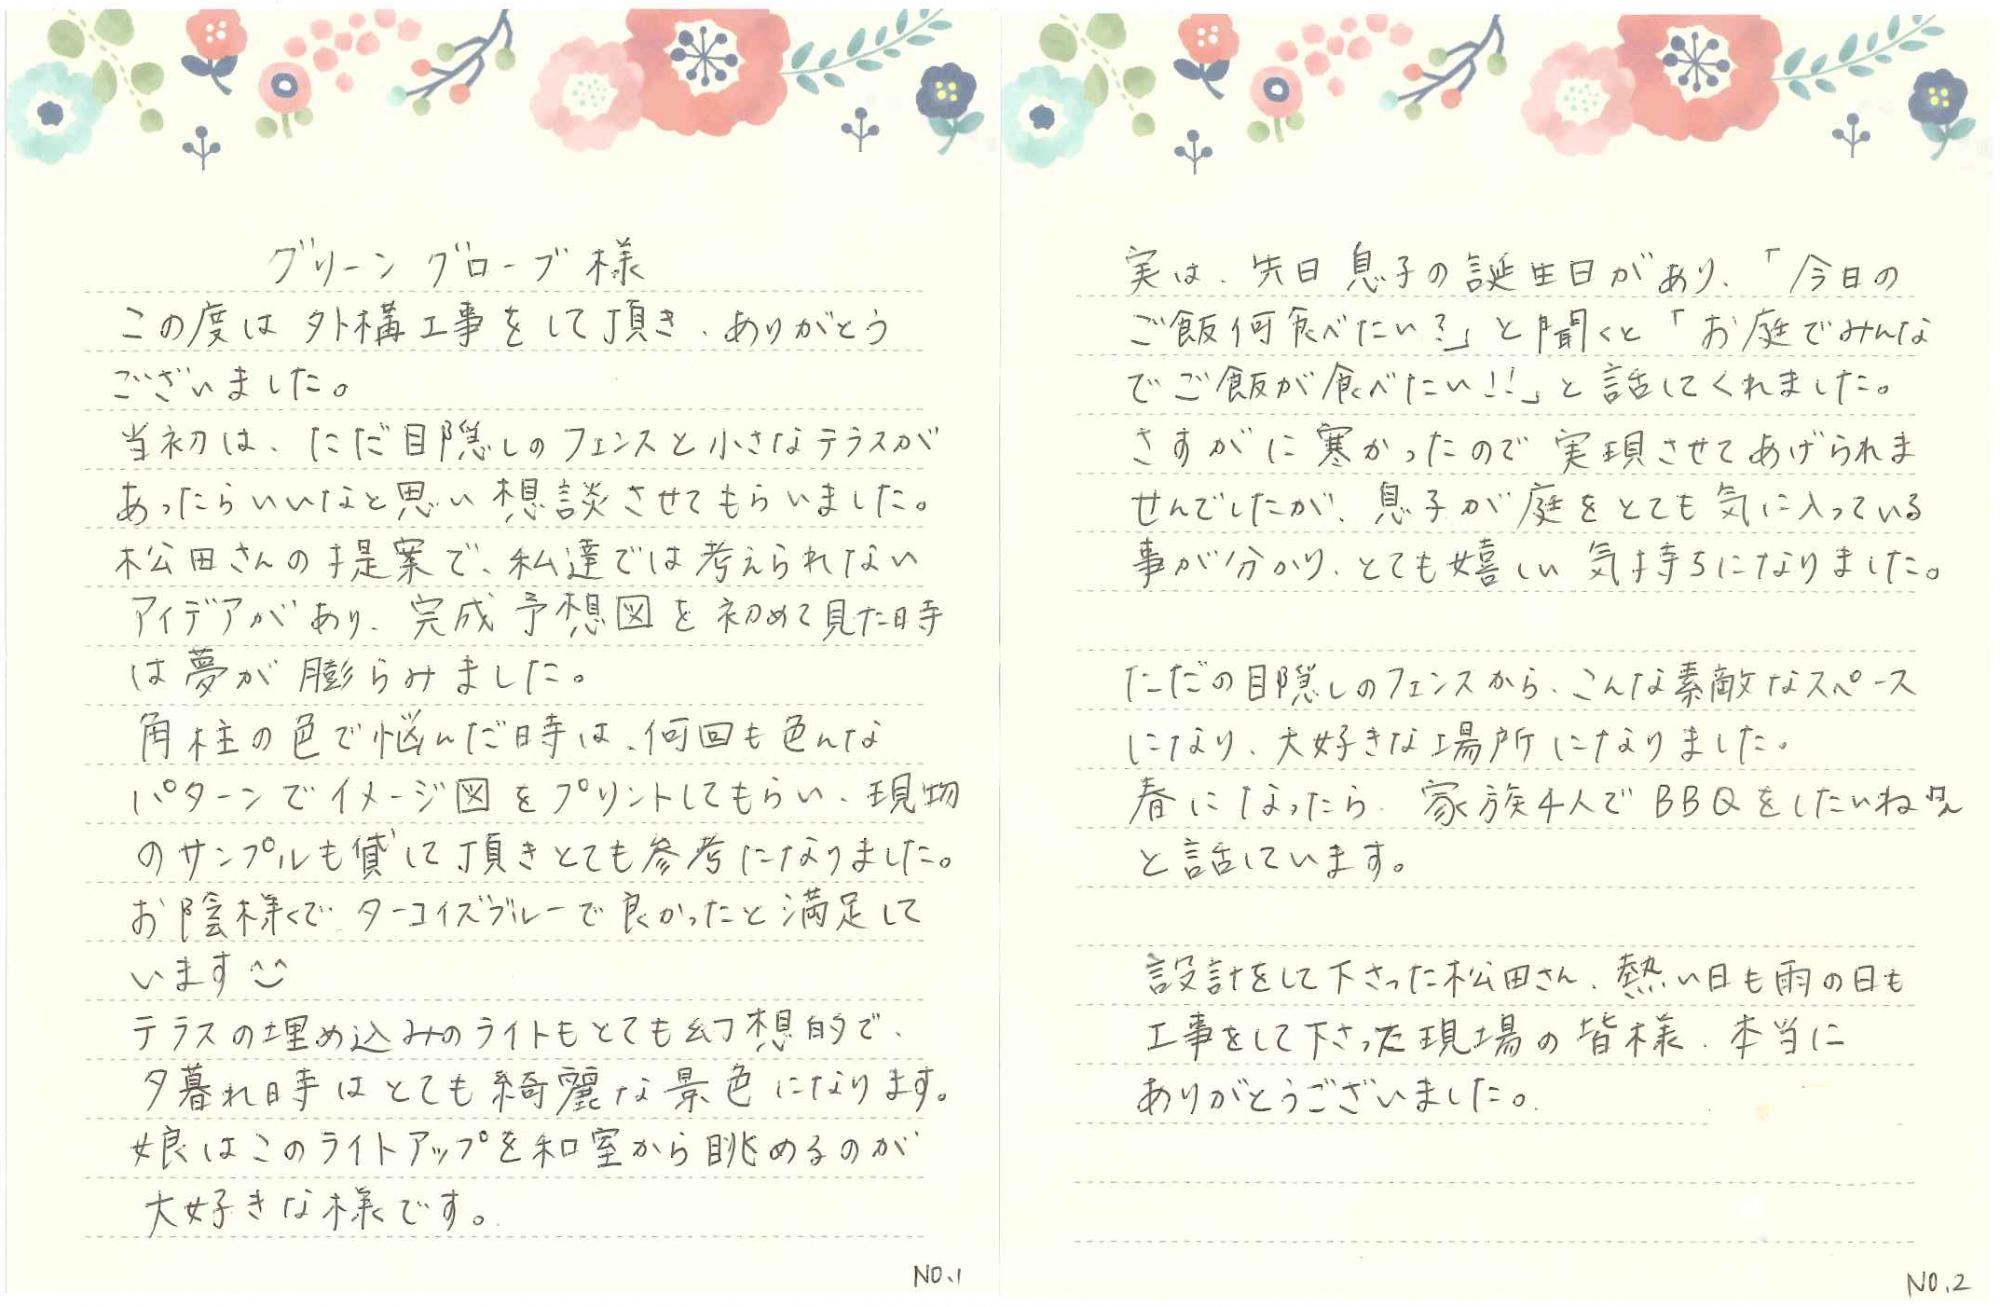 グリーングローブ様
この度は外構工事をして頂き、ありがとう
ございました。
当初は、ただ目隠しのフェンスと小さなテラスが
あったらいいなと思い想談させてもらいました。
松田さんの提案で、私達では考えられない
アイデアがあり、完成予想図を初めて見た時
は夢が膨らみました。
角柱の色で悩んだ時は、何回も色んな
パターンでイメージ図をプリントしてもらい、現物
のサンプルも貸して頂きとても参考になりました。
お陰様でターコイズブルーで良かったと満足して
います^^
テラスの埋め込みのライトもとても幻想的で、
夕暮れ時はとても綺麗な景色になります。
娘はこのライトアップを和室から眺めるのが
大好きな様です。
NO.1
実は、先日息子の誕生日があり、「今日の
ご飯何食べたい?」と聞くと「お庭でみんな
でご飯が食べたい!!」と話してくれました。
さすがに寒かったので実現させてあげられま
せんでしたが、息子が庭をとても気に入っている
事が分かり、とても嬉しい気持ちになりました。
ただの目隠しのフェンスから、こんな素敵なスペース
になり、大好きな場所になりました。
春になったら、家族4人でBBQをしたいね
と話しています。
設計をして下さった松田さん、熱い日も雨の日も
工事をして下さった現場の皆様、本当に
ありがとうございました。
NO.2